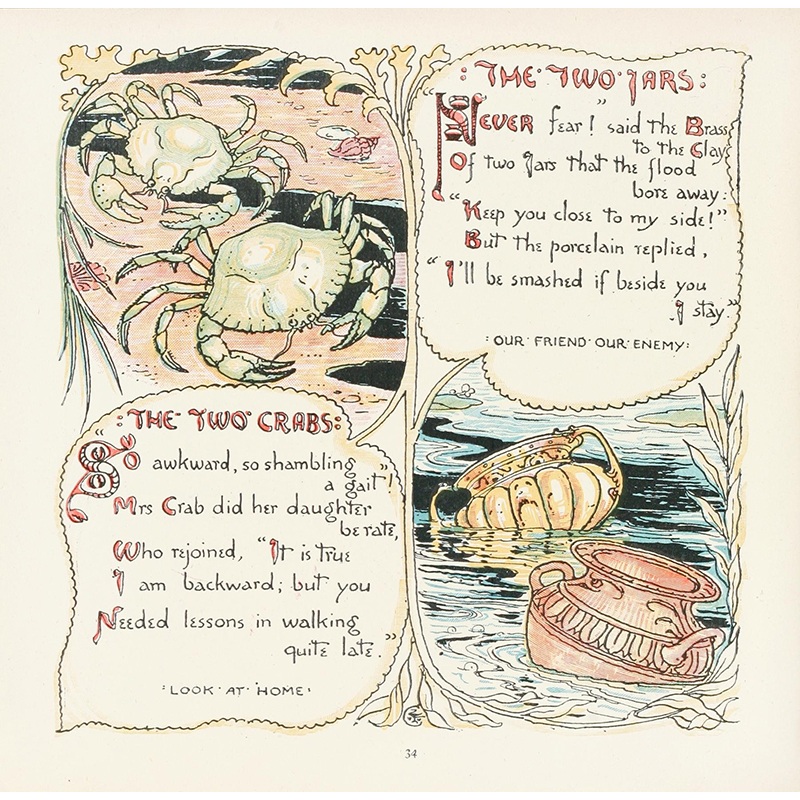 :THE·TWO·CRABS:
"So awkward, so shambling
a gait"!
Mrs Crab did her daughter
be rate,
Who rejoined, "It is true
I am backward; but you
Needed lessons in walking
quite late."
·LOOK·AT·HOME·
:THE·TWO·JARS:
"Never fear!" said the Brass
to the Clay
Of two Jars that the flood
bore away:
"Keep you close to my side!"
But the porcelain replied,
"I'll be smashed if beside you
I stay."
:OUR·FRIEND·OUR·ENEMY:
34